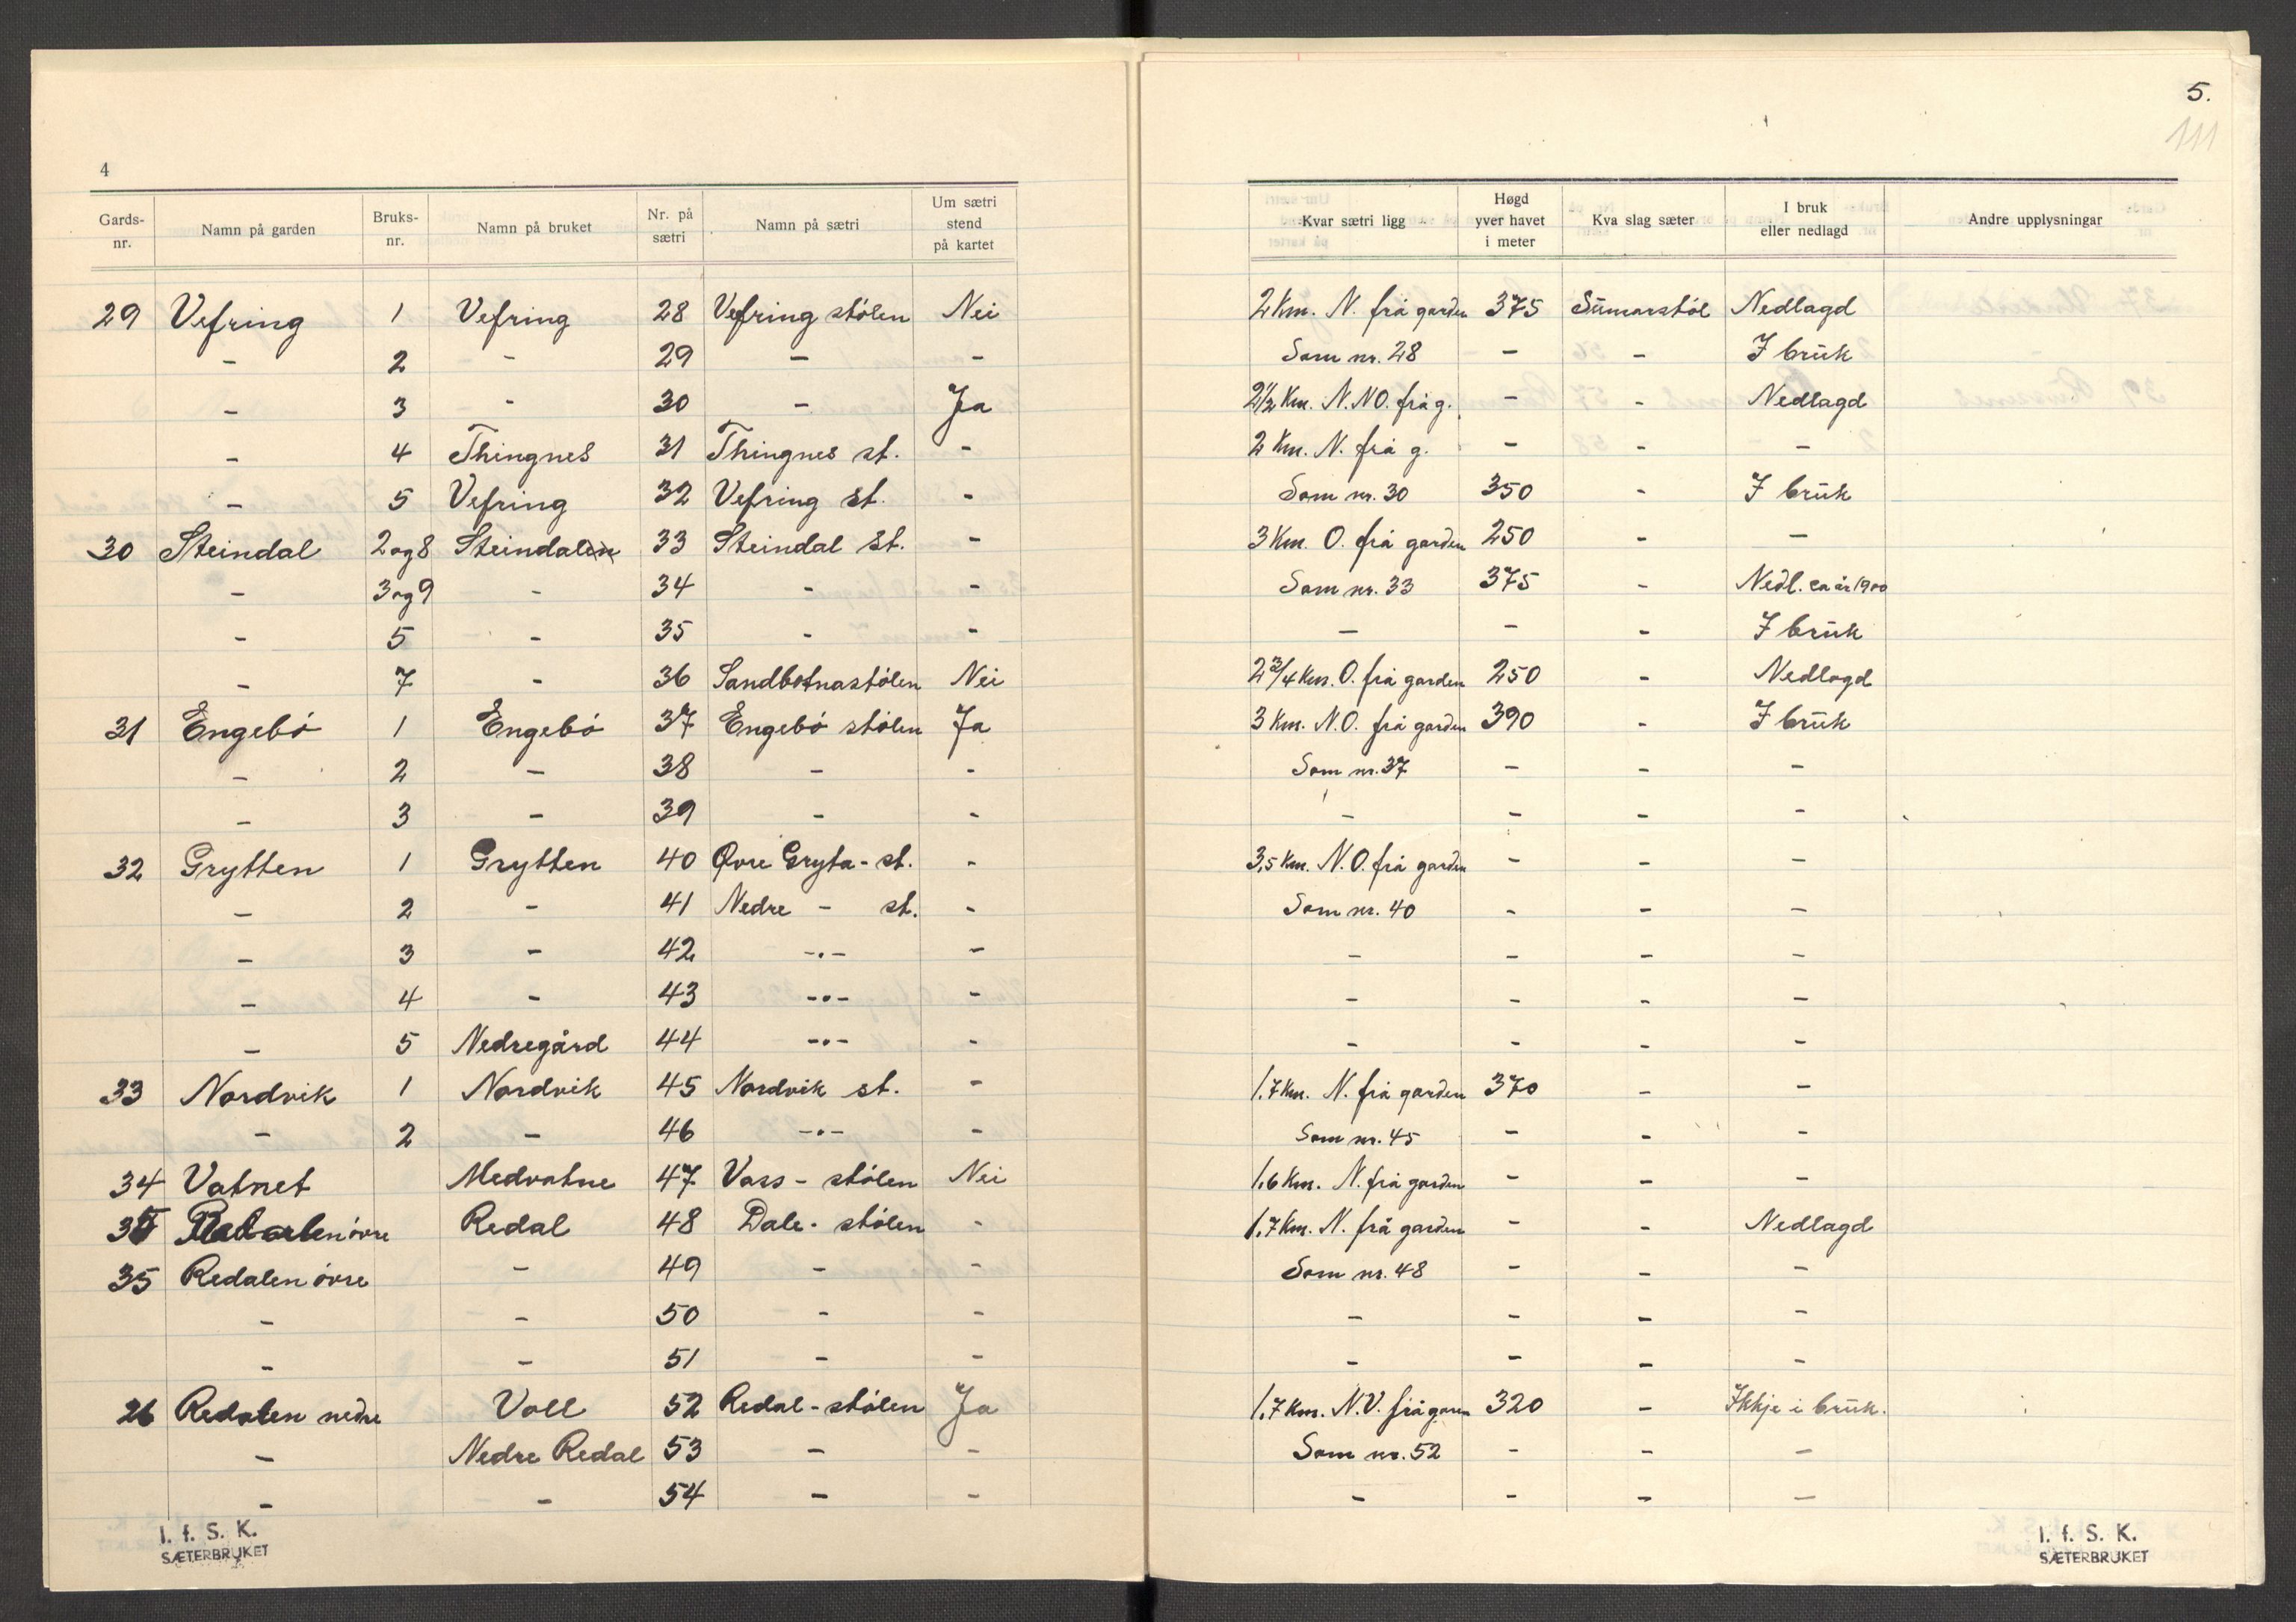 4
Gards-nr. Namn på garden Bruks-nr. Namn på bruket Nr. på sætri Namn på sætri Um sætri stend på kartet
29 Vefring 1 Vefring 28 Vefring stølen Nei
- 2 - 29 - -
- 3 - 30 - Ja
- 4 Thingnes 31 Thingnes st. -
- 5 Vefring 32 Vefring st. -
30 Steindal 2og8 Steindalen 33 Steindal st. -
- 3og9 - 34 - -
- 5 - 35 - -
- 7 - 36 Sandbotnastølen Nei
31 Engebó 1 Engebó 37 Engebó stølen Ja
- 2 - 38 - -
- 3 - 39 - -
32 Grytten 1 Grytten 40 Øvre Gryta-st. -
- 2 - 41 Nedre - st. -
- 3 - 42 -.- -
- 4 - 43 -.- -
- 5 Nedregård 44 -.- -
33 Nordvik 1 Nordvik 45 Nordvik st. -
- 2 - 46 -.- -
34 Vatnet Medvatne 47 Vass-stólen Nei
35 Redalen óvre Redal 48 Dale-stólen -
35 Redalen óvre - 49 - -
- - 50 - -
- - 51 - -
26 Redalen nedre Voll 52 Redal-stølen Ja
- Nedre Redal 53 - -
- - 54 - -
I. f. S. K.
SÆTERBRUKET
5.
111
Kvar sætri ligg Høgd yver havet i meter Kva slag sæter I bruk eller nedlagd Andre upplysningar
2 Km. N. frå garden 375 Sumarstól Nedlagd
Som nr. 28 - - I bruk
2½ Km. N.NO. frå g. - - Nedlagd
2 Km. N. frå g. - - -
Som nr. 30 350 - I bruk
3 Km. O. frå garden 250 - -
Som nr. 33 375 - Nedl. ca år 1900
- - - I bruk
2¾ Km. O. frå garden 250 - Nedlagd
3 Km. N.O. frå garden 390 - I bruk
Som nr. 37 - - -
- - - -
3,5 Km. N.O. frå garden - - -
Som nr. 40 - - -
- - - -
- - - -
- - - -
1,7 Km. N. frå garden 370 - -
Som nr. 45 - - -
1,6 Km. N. frå garden - - -
1,7 Km. N. frå garden - - Nedlagd
Som nr. 48 - - -
- - - -
- - - -
1,7 Km. N.V. frå garen 320 - Ikkje i bruk.
Som nr. 52 - - -
- - - -
I. f. S. K.
SÆTERBRUKET